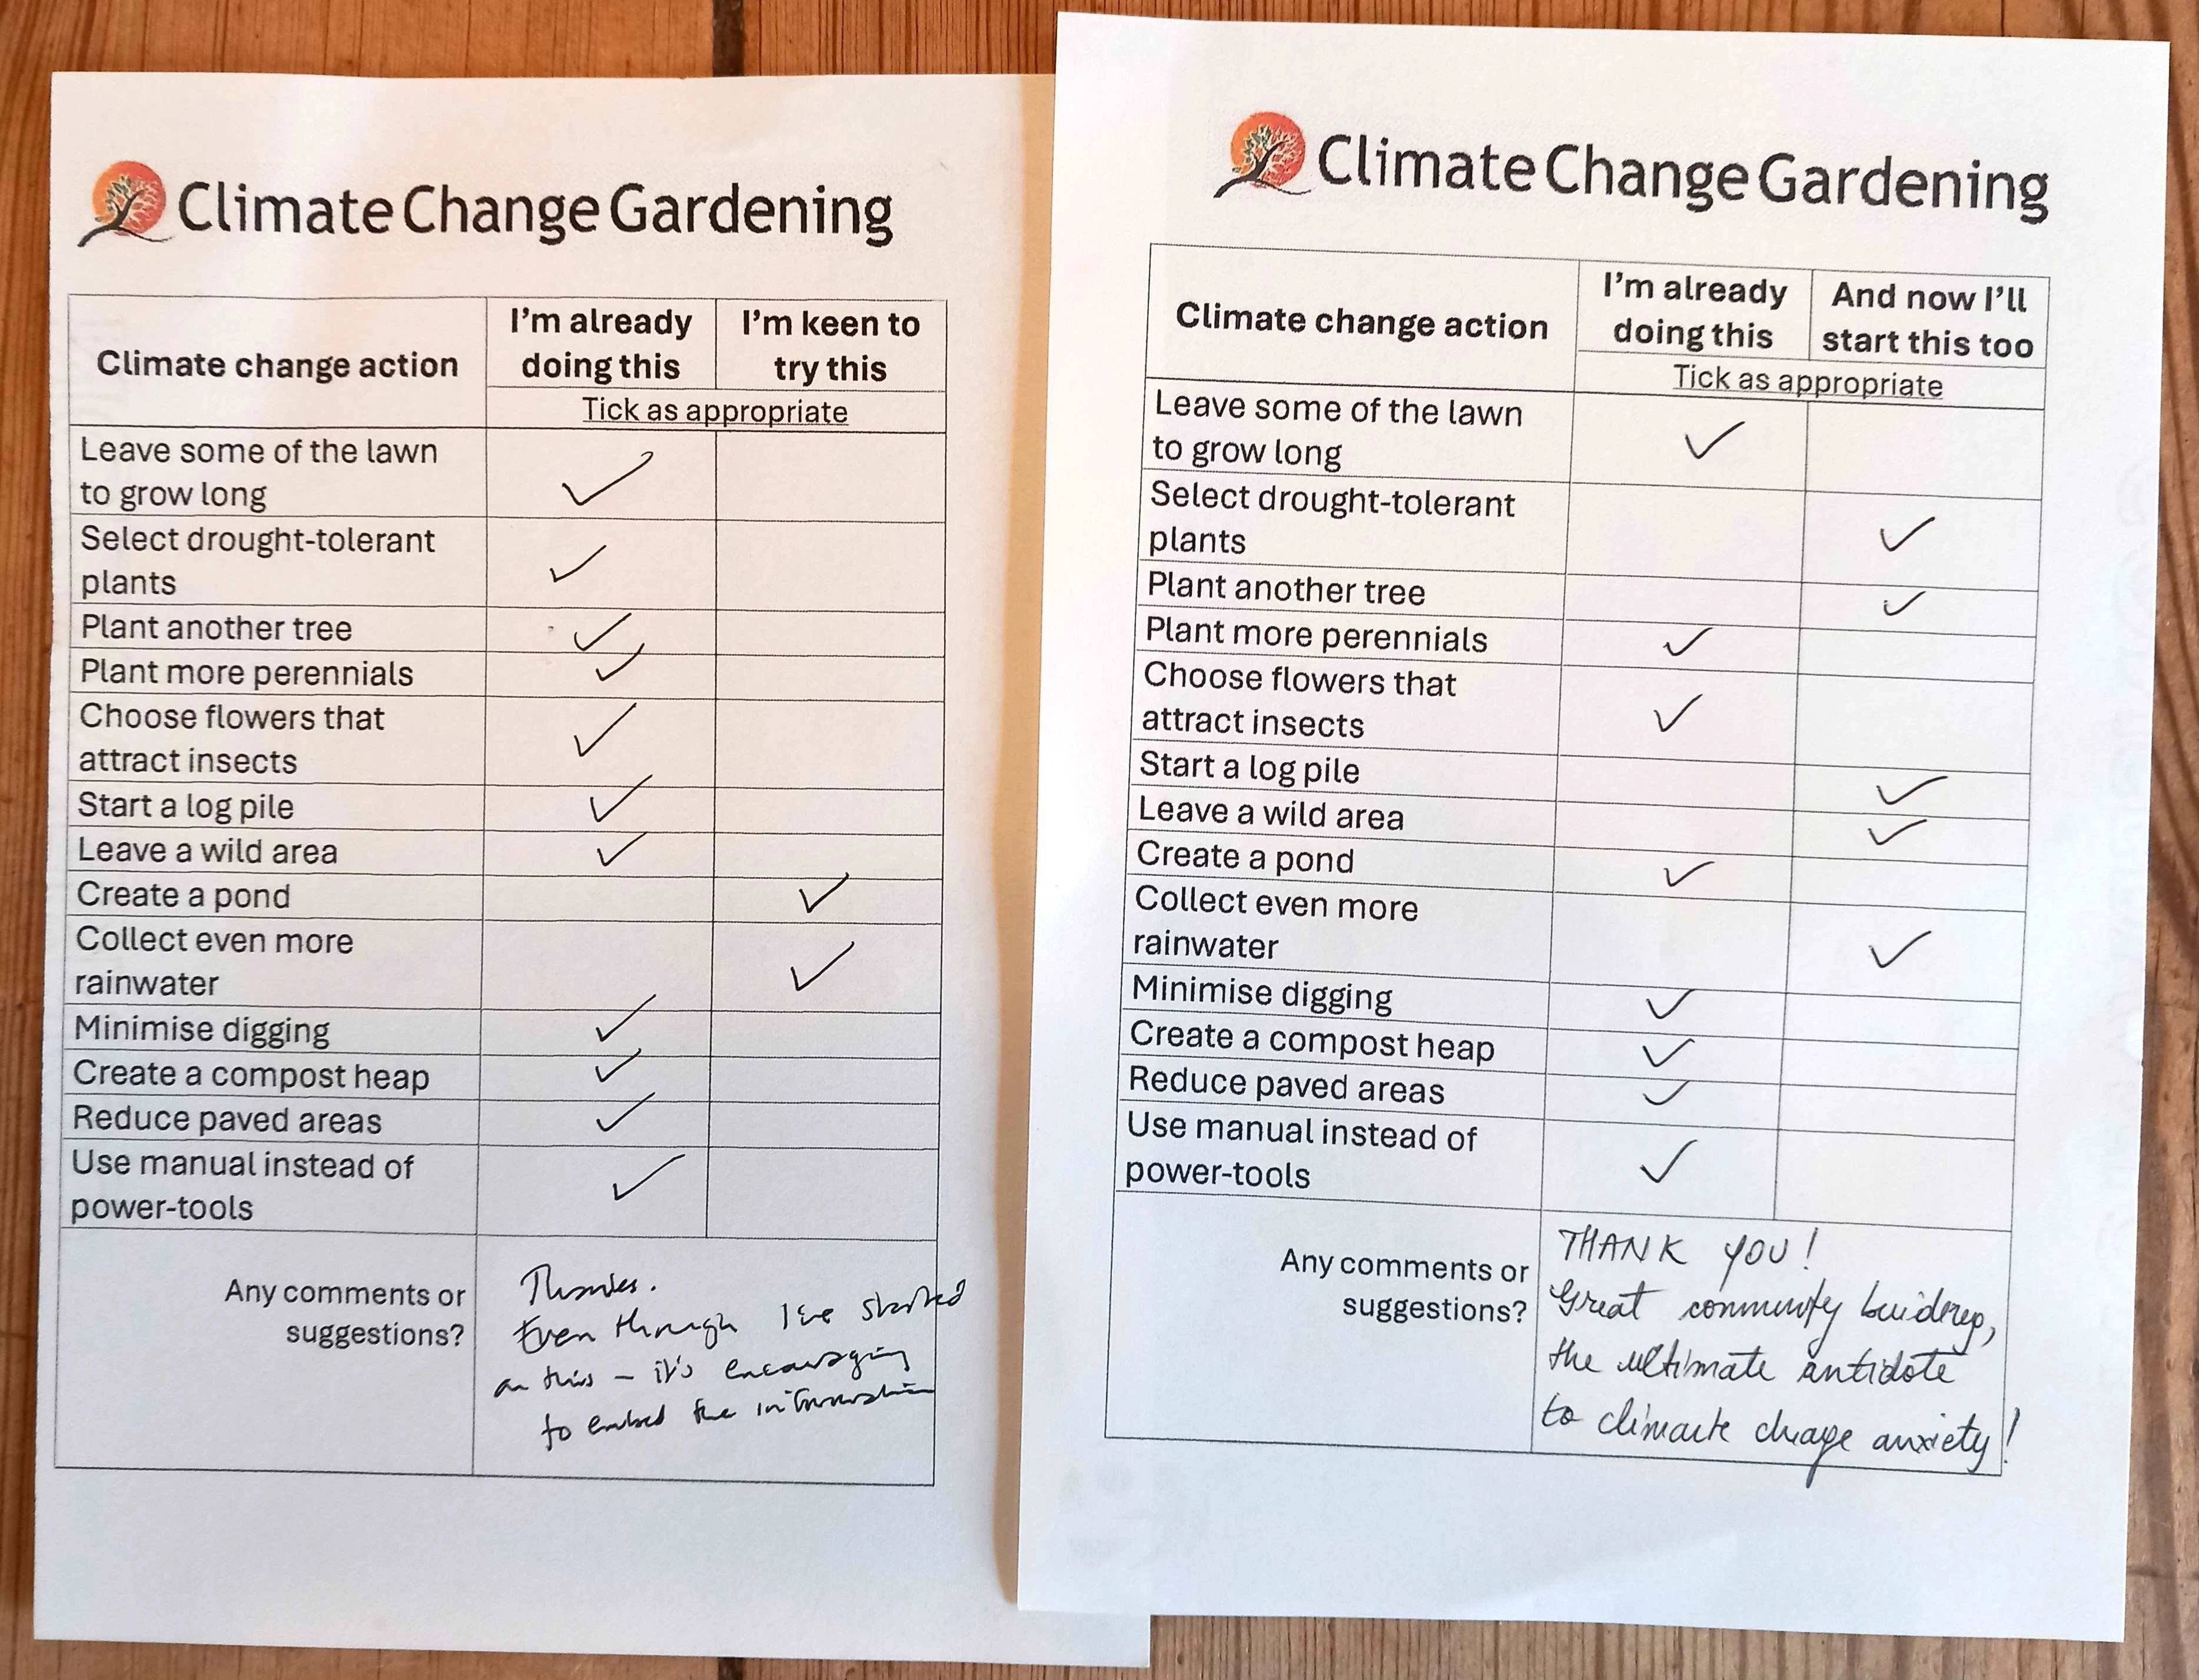 Climate Change Gardening
Climate change action
I'm already
doing this
I'm keen to
try this
Tick as appropriate
Leave some of the lawn
to grow long
✓
Select drought-tolerant
plants
✓
Plant another tree
✓
Plant more perennials
✓
Choose flowers that
attract insects
✓
Start a log pile
✓
Leave a wild area
✓
Create a pond
✓
Collect even more
rainwater
✓
Minimise digging
✓
Create a compost heap
✓
Reduce paved areas
✓
Use manual instead of
power-tools
✓
Any comments or
suggestions?
Thanks.
Even through I've started
on this – it's encouraging
to embed the information
Climate Change Gardening
Climate change action
I'm already
doing this
And now I'll
start this too
Tick as appropriate
Leave some of the lawn
to grow long
✓
Select drought-tolerant
plants
✓
Plant another tree
✓
Plant more perennials
✓
Choose flowers that
attract insects
✓
Start a log pile
✓
Leave a wild area
✓
Create a pond
✓
Collect even more
rainwater
✓
Minimise digging
✓
Create a compost heap
✓
Reduce paved areas
✓
Use manual instead of
power-tools
✓
Any comments or
suggestions?
THANK YOU!
Great community
the ultimate antidote
to climate change anxiety!